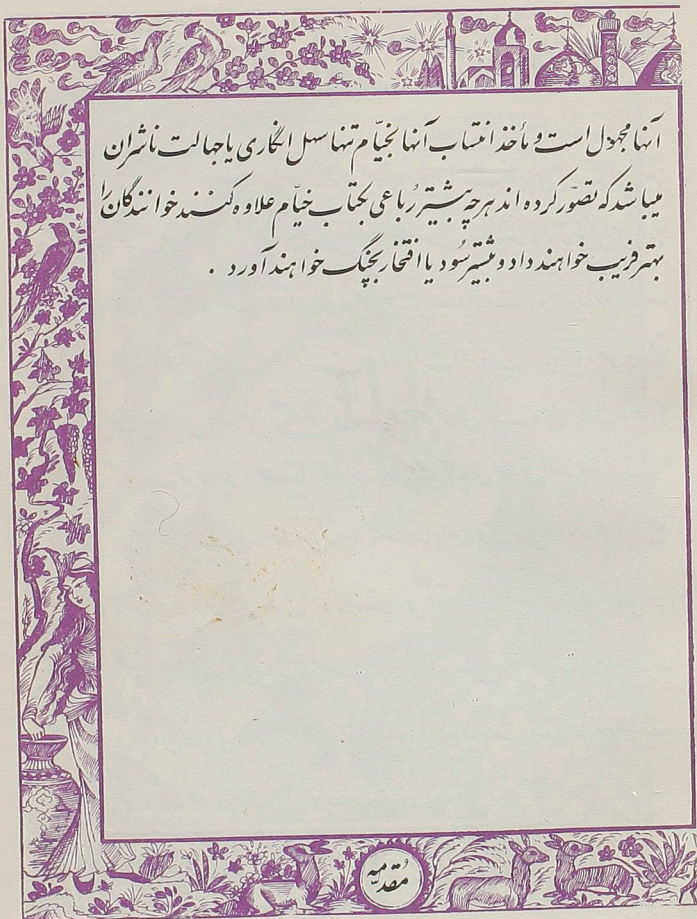 آنها مجهول است و مأخذ انتساب آنها بخیّام تنها سهل انگاری یا جهالت ناشران
میباشد که تصوّر کرده اند هرچه بیشتر رُباعی بکتاب خیّام علاوه کنند خوانندگان را
بهتر فریب خواهند داد و بیشتر سُود یا افتخار بچنگ خواهند آورد .
مُقدّمه